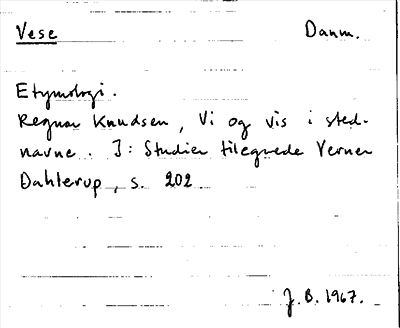 Vese Danm.
Etymologi.
Regnar Knudsen, Vi og vis i sted-
navne. I: Studier tilegnede Verner
Dahlerup, s. 202
J.B. 1967.